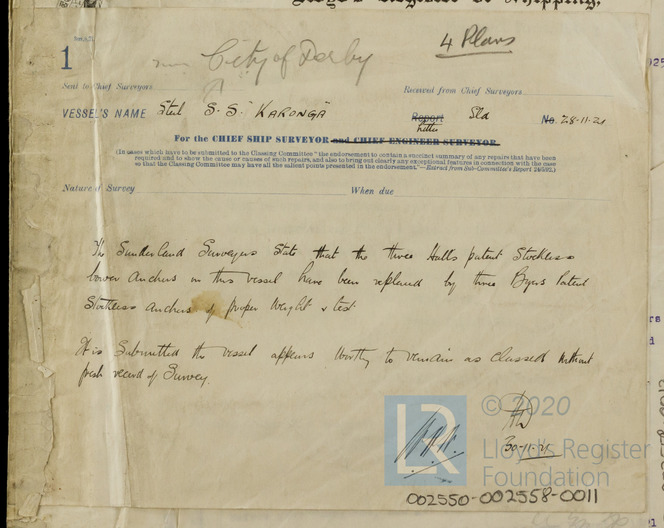 Lloyd's Register of Shipping.
4 Plans
1
now City of Derby
Sent to Chief Surveyors
Received from Chief Surveyors
VESSEL'S NAME Steel S.S. "KARONGA" Report Letter Sld No. 28-11-21
For the CHIEF SHIP SURVEYOR and CHIEF ENGINEER SURVEYOR
(In cases which have to be submitted to the Classing Committee "the endorsement to contain a succinct summary of any repairs that have been
required and to show the cause or causes of such repairs, and also to bring out clearly any exceptional features in connection with the case
so that the Classing Committee may have all the salient points presented in the endorsement."—Extract from Sub-Committee's Report 24/5/92.)
Nature of Survey
When due
The Sunderland Surveyors State that the three Halls patent Stockless
bower anchors on this vessel have been replaced by three Byers Patent
Stockless anchors of proper Weight & test
It is Submitted the vessel appears Worthy to remain as classed without
fresh record of Survey.
30-11-21
LR
© 2020
Lloyd's Register
Foundation
002550-002558-0011